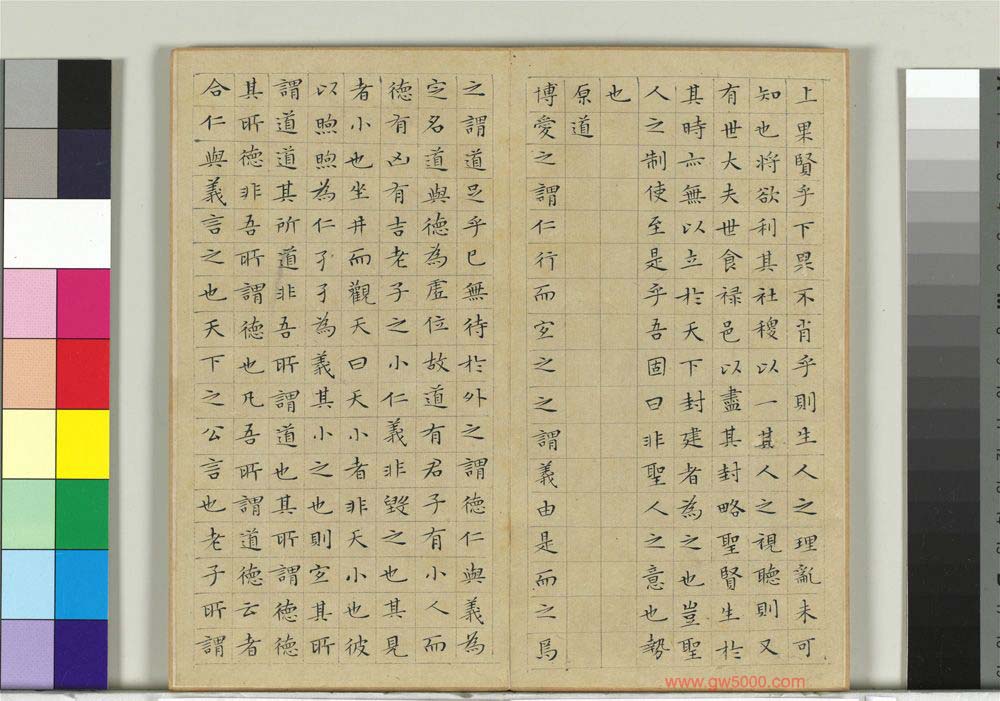 上果賢乎下果不肖乎則生人之理亂未可
知也將欲利其社稷以一其人之視聽則又
有世大夫世食禄邑以盡其封略聖賢生於
其時亦無以立於天下封建者為之也豈聖
人之制使至是乎吾固曰非聖人之意也勢
也
原道
博愛之謂仁行而宜之之謂義由是而之焉
之謂道足乎已無待於外之謂德仁與義為
定名道與德為虛位故道有君子有小人而
德有凶有吉老子之小仁義非毀之也其見
者小也坐井而觀天曰天小者非天小也彼
以煦煦為仁孑孑為義其小之也則宜其所
謂道道其所道非吾所謂道也其所謂德德
其所德非吾所謂德也凡吾所謂道德云者
合仁與義言之也天下之公言也老子所謂
www.gw5000.com